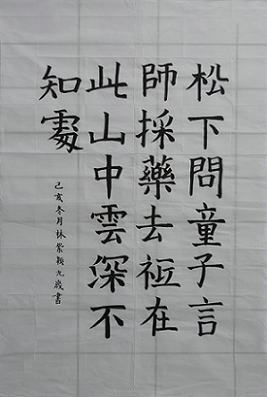 松下問童子言
師採藥去祗在
此山中雲深不
知處
己亥冬月林紫穎九歲書